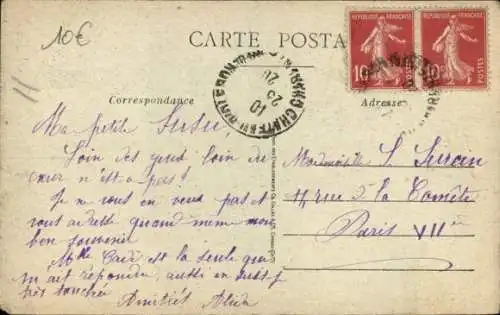 10€
CARTE POSTA
REPUBLIQUE FRANÇAISE
REPUBLIQUE FRANÇAISE
10
10
Correspondance
Adresse
Ma petite Susu,
Loin des yeux loin de
cœur n'est-a pas!
Je ne vous en veux pas et
vous adresse quand meme mon
bon souvenir
Mlle Cadé est la seule qui
m'ait répondu, aussi en suis-j
très touchée
Amitiés Alida
Mademoiselle S. Suran
11 rue de la Comète
Paris VII e